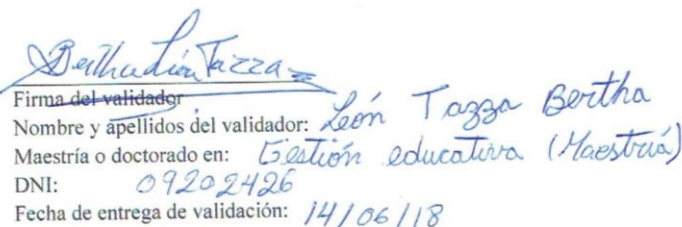 Bertha León Tazza
Firma del validador
Nombre y apellidos del validador: León Tazza Bertha
Maestría o doctorado en: Gestión educativa (Maestría)
DNI: 09202426
Fecha de entrega de validación: 14/06/18